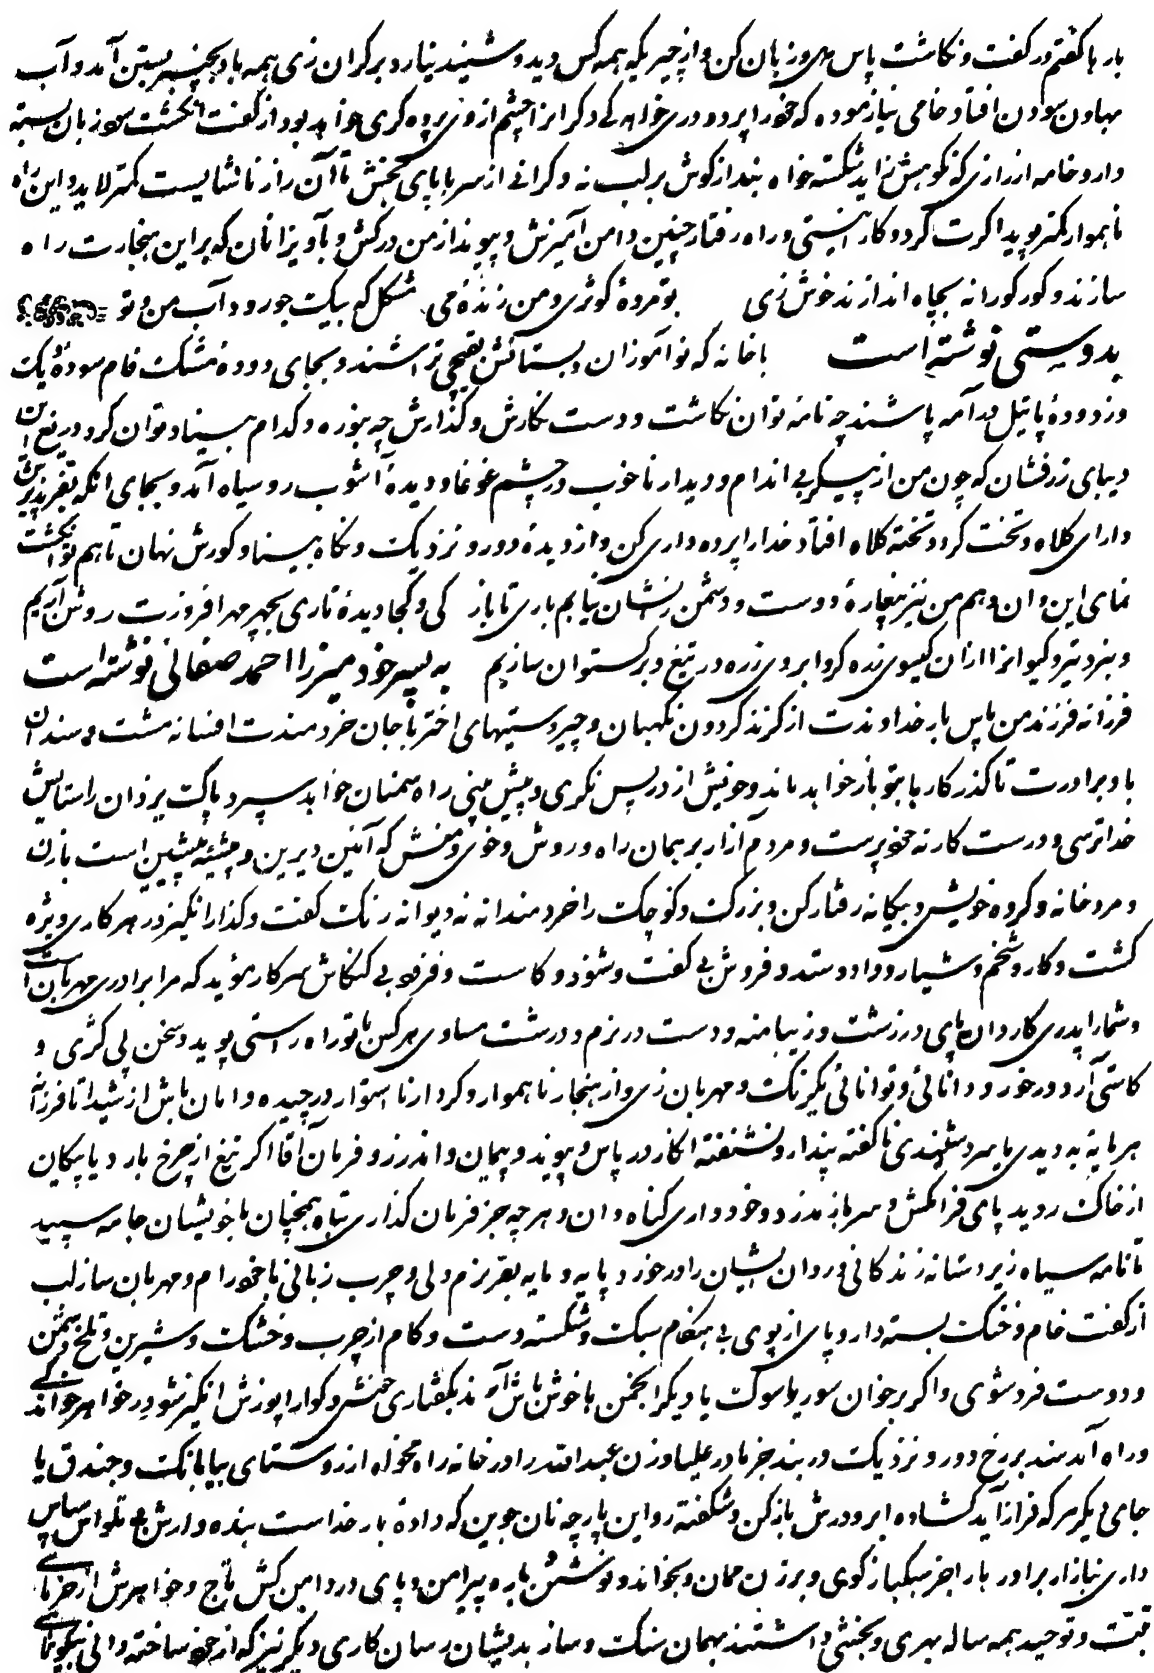 بارها گفتم در گفت و نگاشت پاس روز بان کن و از چیزیکه همه کس دید و شنید نیارد بر کران زی همه باد بچنبر بستن آمد و آب
بهاون سودن افتاد خامی نیازموده که خود را پرده دری خواهد کرد
دارد خامه از رازی که نکوهش زاید شکسته خواه بند از گوش بر لب نه و گرانی از سر بپای بخش تا آن راز ناشایست کمتر لاید و این راه
ناهموار کمتر پوید اگرت گرد و کار اینستی و راه رفتار چنین دامن آمیزش و پیوند از من در کش و با ویژانان که بر این هنجارت راه
سازند و کورکورانه بچاه اندازند خوش زی بو مرده کوثری و من زنده می مشکل که بیک جو رود آب من و تو
بدوستی نوشته است با خامه که نوآموزان دبستانش بقیچی تراشند و بجای دوده مشک فام سوده
دزد دوده پاتیل در آمه پاشند چه نامه توان نگاشت و دست نگارش و گذارش چه بنوره و کدام بنیاد توان کرد دریغ این
دیبای زرفشان که چون من از پیکر بی اندام و دیدار ناخوب در چشم غوغا و دیده آشوب رو سیاه آمد و بجای انکه
دارای کلاه و تخت گردد تخته کلاه افتاد خدا را پرده داری کن و از دیده دور و نزدیک و نگاه بینا و کورش نهان تا هم تو انگشت
نمای این و آن و هم من نیز بیغاره دوست و دشمن نیابم باری تا باز کی و کجا دیده تاری بچهر مهر افروزت روشن آریم
و بنبرد تیر و کیوانرا از آن گیسوی زره گر و ابروی زره در تیغ و برگستوان سازیم به پسر خود میرزا احمد صفائی نوشته است
فرزانه فرزند من پاس بار خداوندت از گزند گردون نگهبان و چیر دستیهای اختر با جان خردمندت افسانه مشت و سندان
با برادرت تا گذر کار با بتو باز خواهد ماند و خویش از در پس نگری و پیش بینی راه سمنان خواهد سپرد پاک یزدان را ستایش
خداترسی و درست کار نه خودپرست و مردم آزار بر همان راه و روش و خوی و منش که آئین دیرین و پیشه پیشین است با زن
و مرد خانه و گروه خویش و بیگانه رفتار کن و بزرگ و کوچک را خردمندانه نه دیوانه رنگ گفت و گذار انگیز در هر کاری ویژه
کشت و کار و تخم و شیار و داد و ستد و فروش بی گفت و شنود و کاست و فزود بی کنکاش سرکار مؤید که مرا برادری مهربان است
و شما را پدری کاردان پای در زشت و زیبا منه و دست در نرم و درشت مساو هر کس با تو راه راستی پوید و سخن بی کژی و
کاستی آرد در خورد دانائی و توانائی یکرنگ و مهربان زی و از هنجار ناهموار و کردار نا استوار در چیده دامان باش از شیدا تا فرزانه
هر مایه بد دیدی یا بمرد شنیدی ناگفته پندار و نشنفته انگار در پاس و پیوند و پیمان و اندرز و فرمان آقا اگر تیغ از چرخ بارد یا پیکان
از خاک روید پای فرا مکش و سر باز مدزد و خودداری گناه دان و هر چه جز فرمان گذاری تباه همچنان با خویشان جامه سپید
تا نامه سیاه زیر دستانه زندگانی و روان ایشان را در خورد پایه و مایه بفر نرم دلی و چرب زبانی با خود رام و مهربان ساز لب
از گفت خام و خنک بسته دار و پای از پوی بی هنگام سبک و شکسته دست و کام از چرب و خشک و شیرین و تلخ دشمن
و دوست فرو شوی و اگر بر خوان سور یا سوک یا دیگر انجمن ها خوش یا گفتاری خنک و گواه پوزش انگیز نشود در خواهر خواندگی
و راه آمد شد بر رخ دور و نزدیک در بند جز مادر علیا و زن عبدالله را در خانه راه مخواه از روستای بیابانک و جندق یا
جای دیگر هر که فراز آید گشاده ابرو در بر وی باز کن و شکفته رو این پارچه نان جوین که داده بار خداست بنده وارش سپاس
داری نیاز آر برادر بار
قبت و توحید همه ساله مهری و بخششی داشتند بهمان سنگ و ساز بدیشان رسان کاری دیگر نیز که از خود ساخته دانی